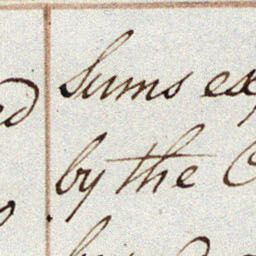 Sums ex
by the C